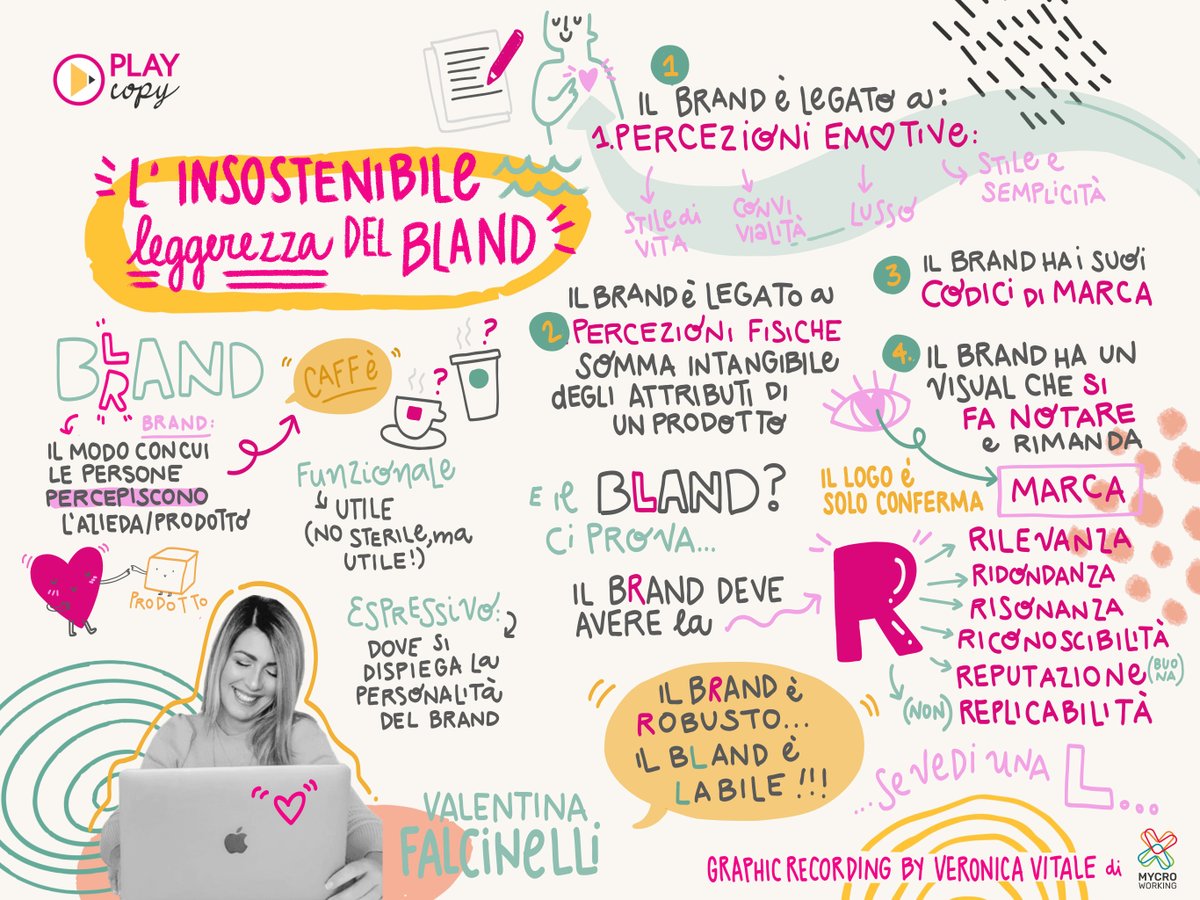 PLAY
copy
L'INSOSTENIBILE
leggerezza DEL BLAND
1
IL BRAND È LEGATO a:
1. PERCEZIONI EMOTIVE:
STILE di
VITA
CONVI
VIALITÀ
LUSSO
STILE E
SEMPLICITÀ
BLAND
R
BRAND:
IL MODO CON CUI
LE PERSONE
PERCEPISCONO
L'AZIEDA/PRODOTTO
PRODOTTO
"CAFFÈ"
?
?
FUNZIONALE
UTILE
(NO STERILE, ma
UTILE!)
ESPRESSIVO:
DOVE SI
DISPIEGA LA
PERSONALITÀ
DEL BRAND
IL BRAND È LEGATO a
2 PERCEZIONI FISICHE
SOMMA INTANGIBILE
DEGLI ATTRIBUTI DI
UN PRODOTTO
3
IL BRAND HA I SUOI
CODICI DI MARCA
4.
IL BRAND HA UN
VISUAL CHE SI
FA NOTARE
e RIMANDA
IL LOGO È
SOLO CONFERMA
MARCA
E IL BLAND?
CI PROVA...
IL BRAND DEVE
AVERE la
R
RILEVANZA
RIDONDANZA
RISONANZA
RICONOSCIBILITÀ
REPUTAZIONE (BUONA)
(NON) REPLICABILITÀ
IL BRAND È
ROBUSTO...
IL BLAND È
LABILE!!!
...SE VEDI UNA L...
VALENTINA
FALCINELLI
GRAPHIC RECORDING BY VERONICA VITALE di
MYCRO
WORKING